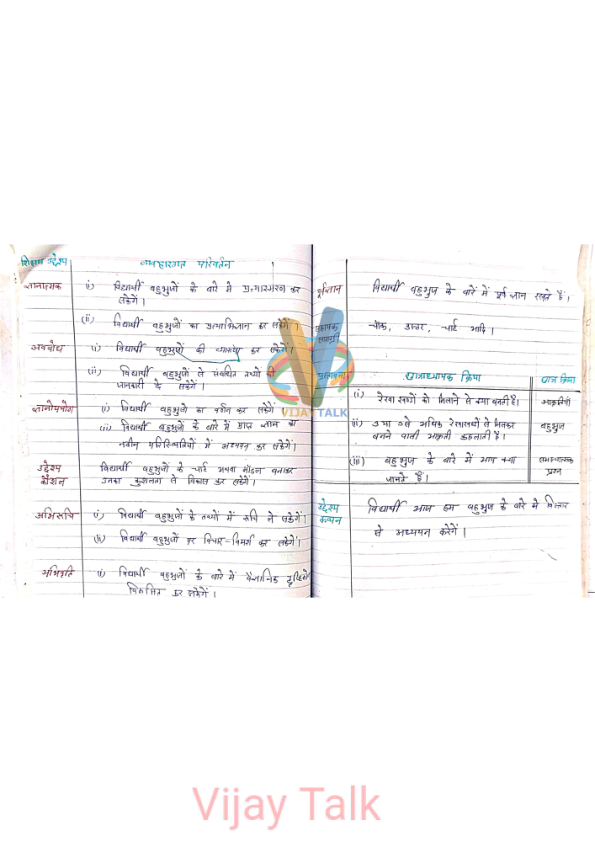 शिक्षण उद्देश्य व्यवहारगत परिवर्तन
ज्ञानात्मक (i) विद्यार्थी बहुभुजों के बारे में प्रत्यास्मरण कर
सकेंगे।
(ii) विद्यार्थी बहुभुजों का प्रत्याभिज्ञान कर सकेंगे।
अवबोध (i) विद्यार्थी बहुभुजों की व्याख्या कर सकेंगे।
(ii) विद्यार्थी बहुभुजों से संबंधित तथ्यों की
जानकारी दे सकेंगे।
ज्ञानोपयोग (i) विद्यार्थी बहुभुजों का वर्णन कर सकेंगे
(ii) विद्यार्थी बहुभुजों के बारे में प्राप्त ज्ञान का
नवीन परिस्थितियों में अध्ययन कर सकेंगे।
उद्देश्य विद्यार्थी बहुभुजों के चार्ट अथवा मॉडल बनाकर
कौशल उनका कुशलता से विकास कर सकेंगे।
अभिरुचि (i) विद्यार्थी बहुभुजों के तथ्यों में रूचि ले सकेंगे।
(ii) विद्यार्थी बहुभुजों पर विचार-विमर्श कर सकेंगे।
अभिवृति (i) विद्यार्थी बहुभुजों के बारे में वैज्ञानिक
विकसित कर सकेंगे।
पूर्वज्ञान विद्यार्थी बहुभुज के बारे में पूर्व ज्ञान रखते हैं।
सहायक सामग्री चॉक, डस्टर, चार्ट आदि।
छात्राध्यापक क्रिया छात्र क्रिया
(i) रेखाखण्डों को मिलाने से क्या बनती है। आकृतियाँ
(ii) 3 या 3 से अधिक रेखाखण्डों से मिलकर बहुभुज
बनने वाली आकृती कहलाती है।
(iii) बहुभुज के बारे में आप क्या समस्यात्मक
जानते हैं। प्रश्न
उद्देश्य विद्यार्थी आज हम बहुभुज के बारे में विस्तार
कथन से अध्ययन करेगें।
VIJAY TALK
Vijay Talk